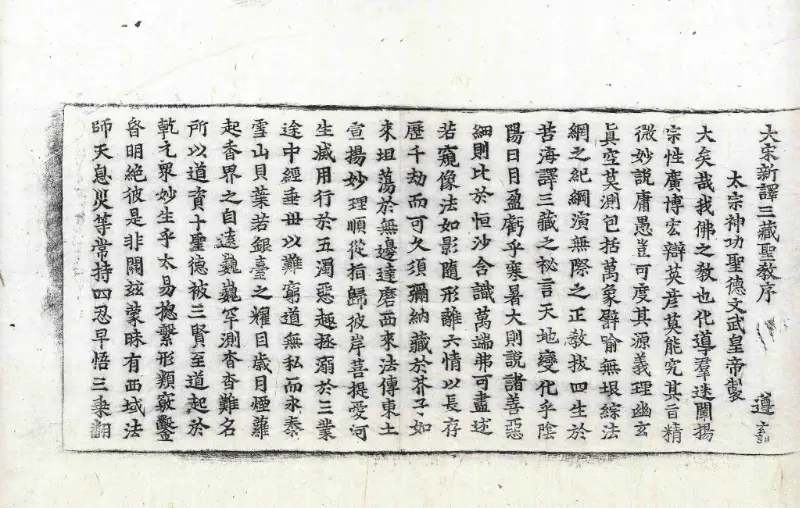 大宋新譯三藏聖教序
太宗神功聖德文武皇帝製
大矣哉我佛之教也化導羣迷闡揚
宗性廣博宏辯英彦莫能究其旨精
微妙說庸愚豈可度其源義理幽玄
眞空莫測包括萬象譬喻無垠綜法
網之紀綱演無際之正教拔四生於
苦海譯三藏之祕言天地變化乎陰
陽日月盈虧乎寒暑大則說諸善惡
細則比於恒沙含識萬端弗可盡述
若窺像法如影隨形離六情以長存
歷千劫而可久須彌納藏於芥子如
來坦蕩於無邊達磨西來法傳東土
宣揚妙理順從指歸彼岸菩提愛河
生滅用行於五濁惡趣拯溺於三業
途中經垂世以難窮道無私而永泰
雪山貝葉若銀臺之耀目歲月煙蘿
起香界之自遠巍巍罕測杳杳難名
所以道資十聖德被三賢至道起於
乾元衆妙生乎太易揔繫形類竅鑿
昏明絶彼是非開玆蒙昧有西域法
師天息災等常持四忍早悟三乘翻